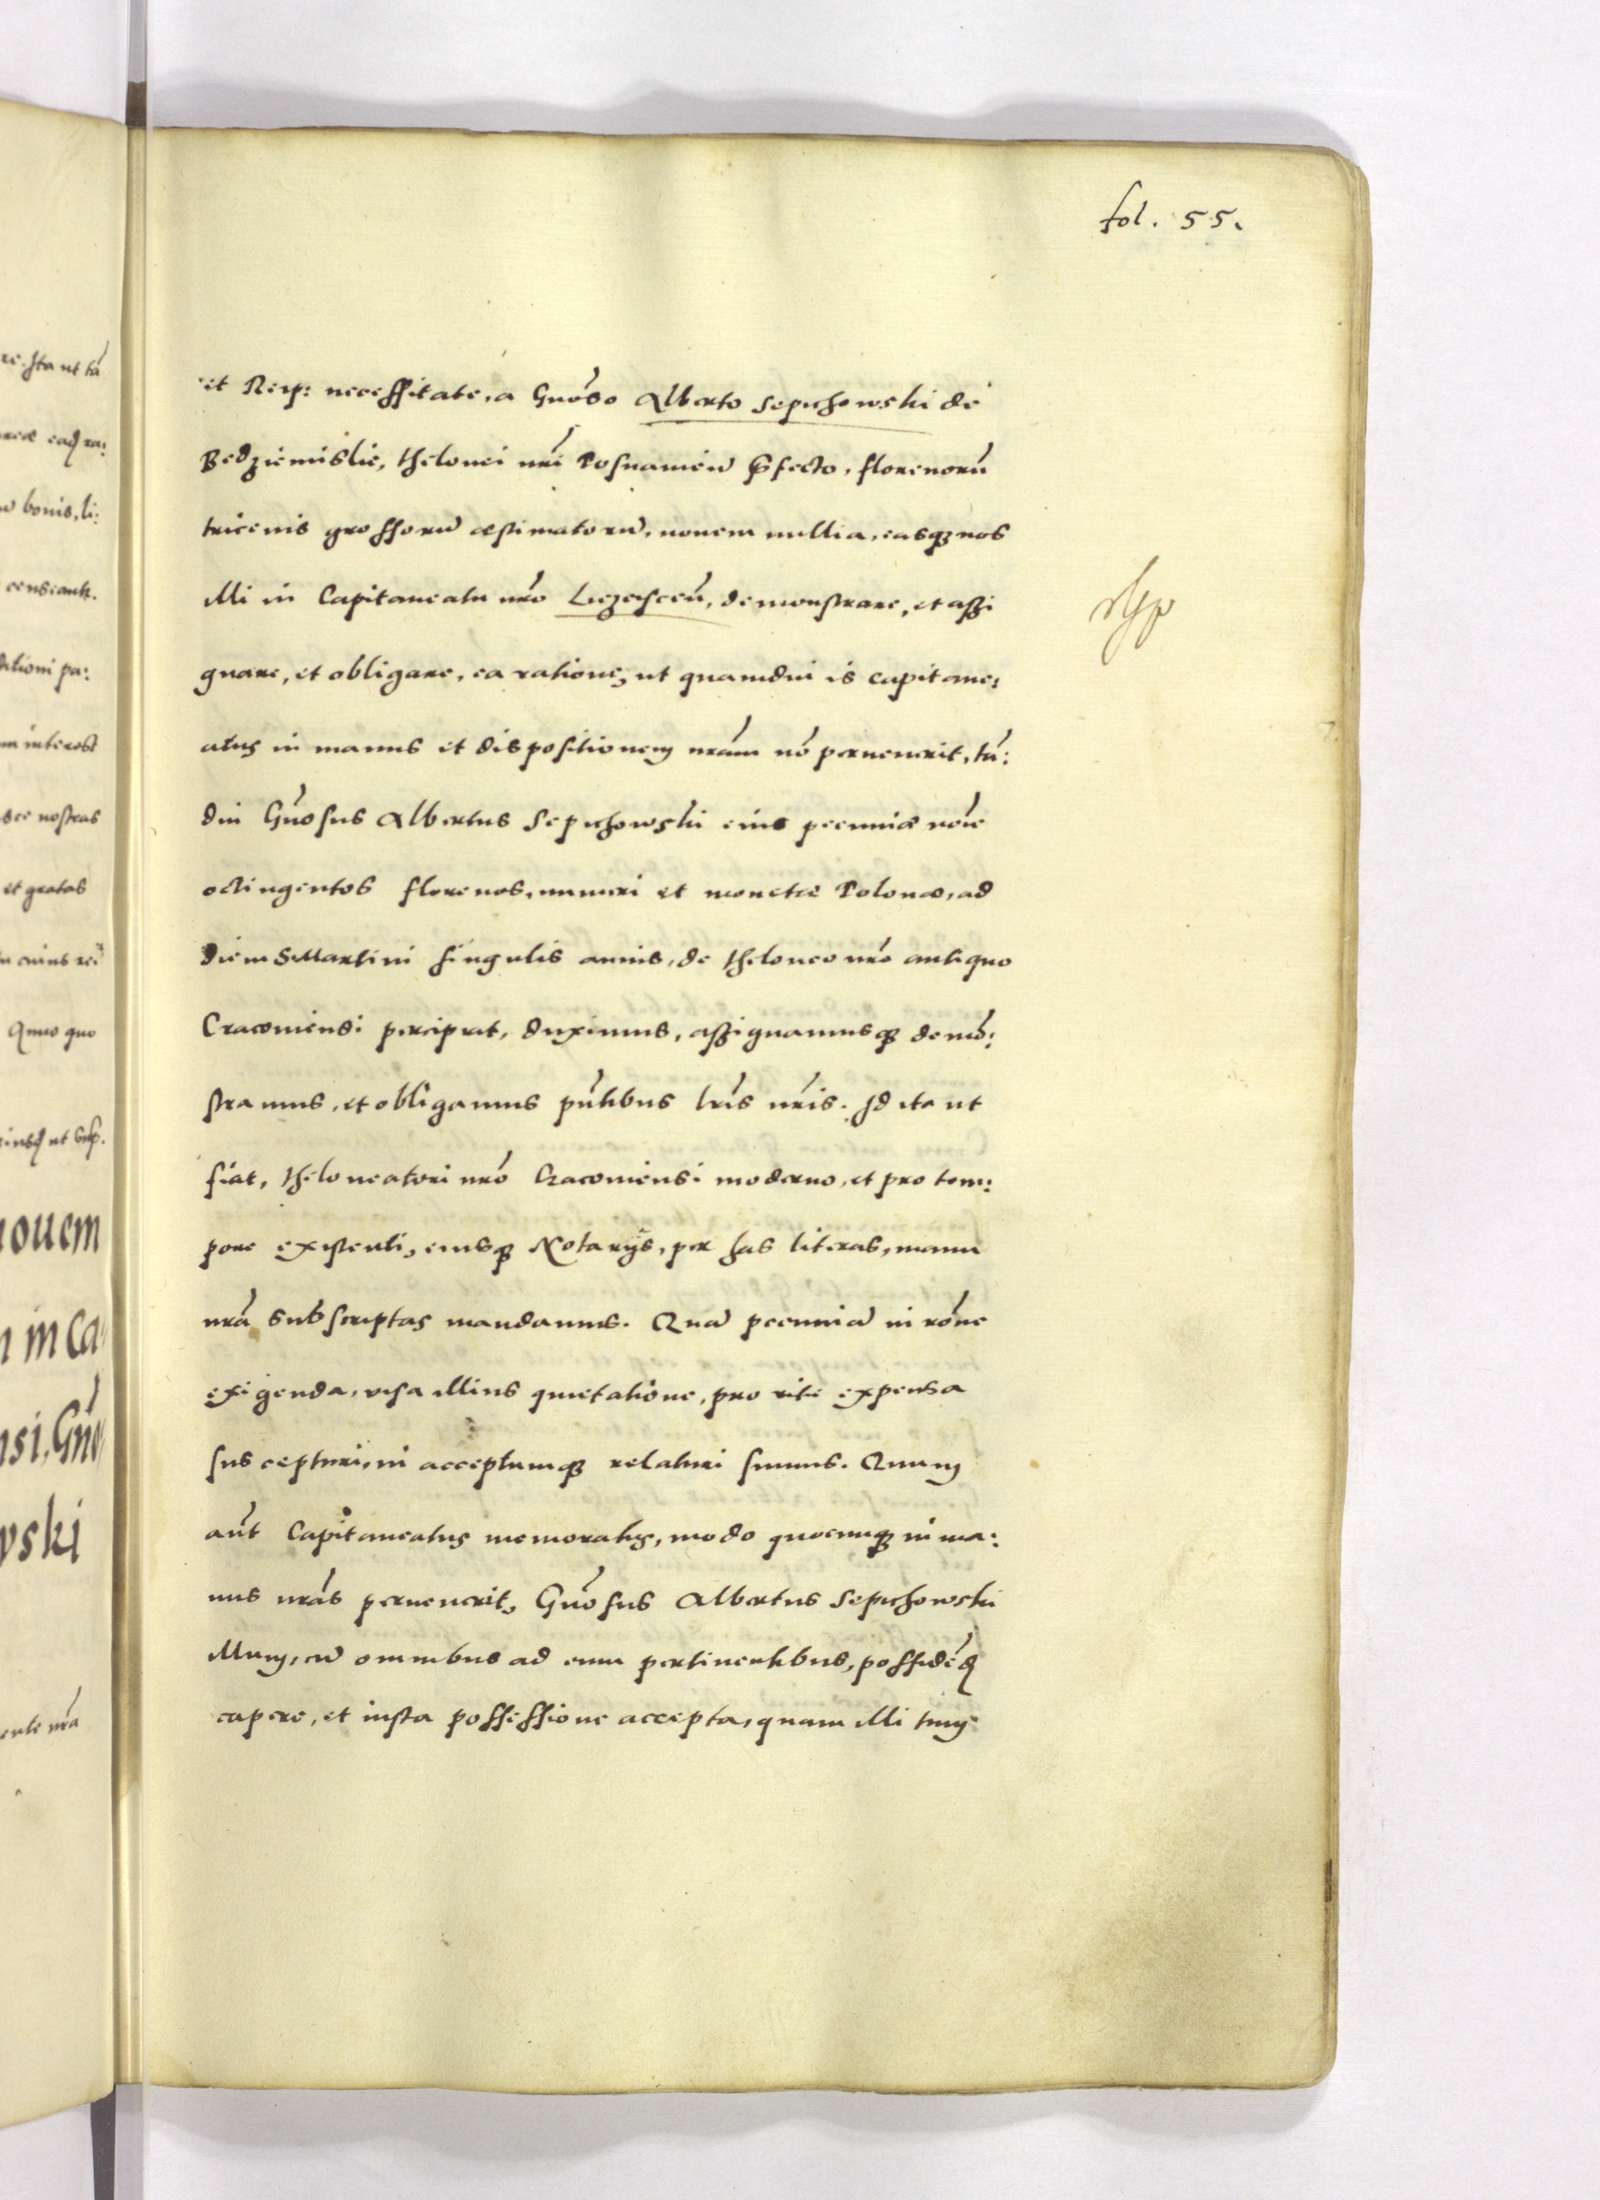 fol. 55.
et Reip: necessitate, a Gnoso Alberto Sepichowski de
Bedziemislie, thelonei nri Posnanien praefecto, florenoru
tricenis grossoru aestimatoru, nouem millia, easq nos
illi in Capitaneatu nro Liezaiscen, demonstrare, et assi
gnare, et obligare, ea ratione, ut quamdiu is capitane:
atus in manus et dispositionem nram no peruenerit, ta:
diu Gnosus Albertus Sepichowski eius pecuniae noie
octingentos florenos, numeri et monetae Polonae, ad
diem S. Martini singulis annis, de theloneo nro antiquo
Cracouiensi percipiat, duximus, assignamusq demo:
stramus, et obligamus pntibus lris nris. Id ita ut
fiat, theloneatori nro Cracouiensi moderno, et pro tem:
pore existenti, eiusq Notarijs, per has literas, manu
nra subscriptas mandamus. Qua pecunia in rone
exigenda, visa illius quietatione, pro rite expensa
suscepturi, in acceptumq relaturi sumus. Quum
aut Capitaneatus memoratus, modo quocunq in ma:
nus nras peruenerit, Gnosus Albertus Sepichowski
illum, cu omnibus ad eum pertinentibus, possided
capere, et iusta possessione accepta, quam illi tunc
re. Ita ut ta
bonis, li:
censeant.
ditioni pa:
interest
nostras
et gratas
Anno quo
nouem
in Ca
nsi, Gno
wski
ente nra